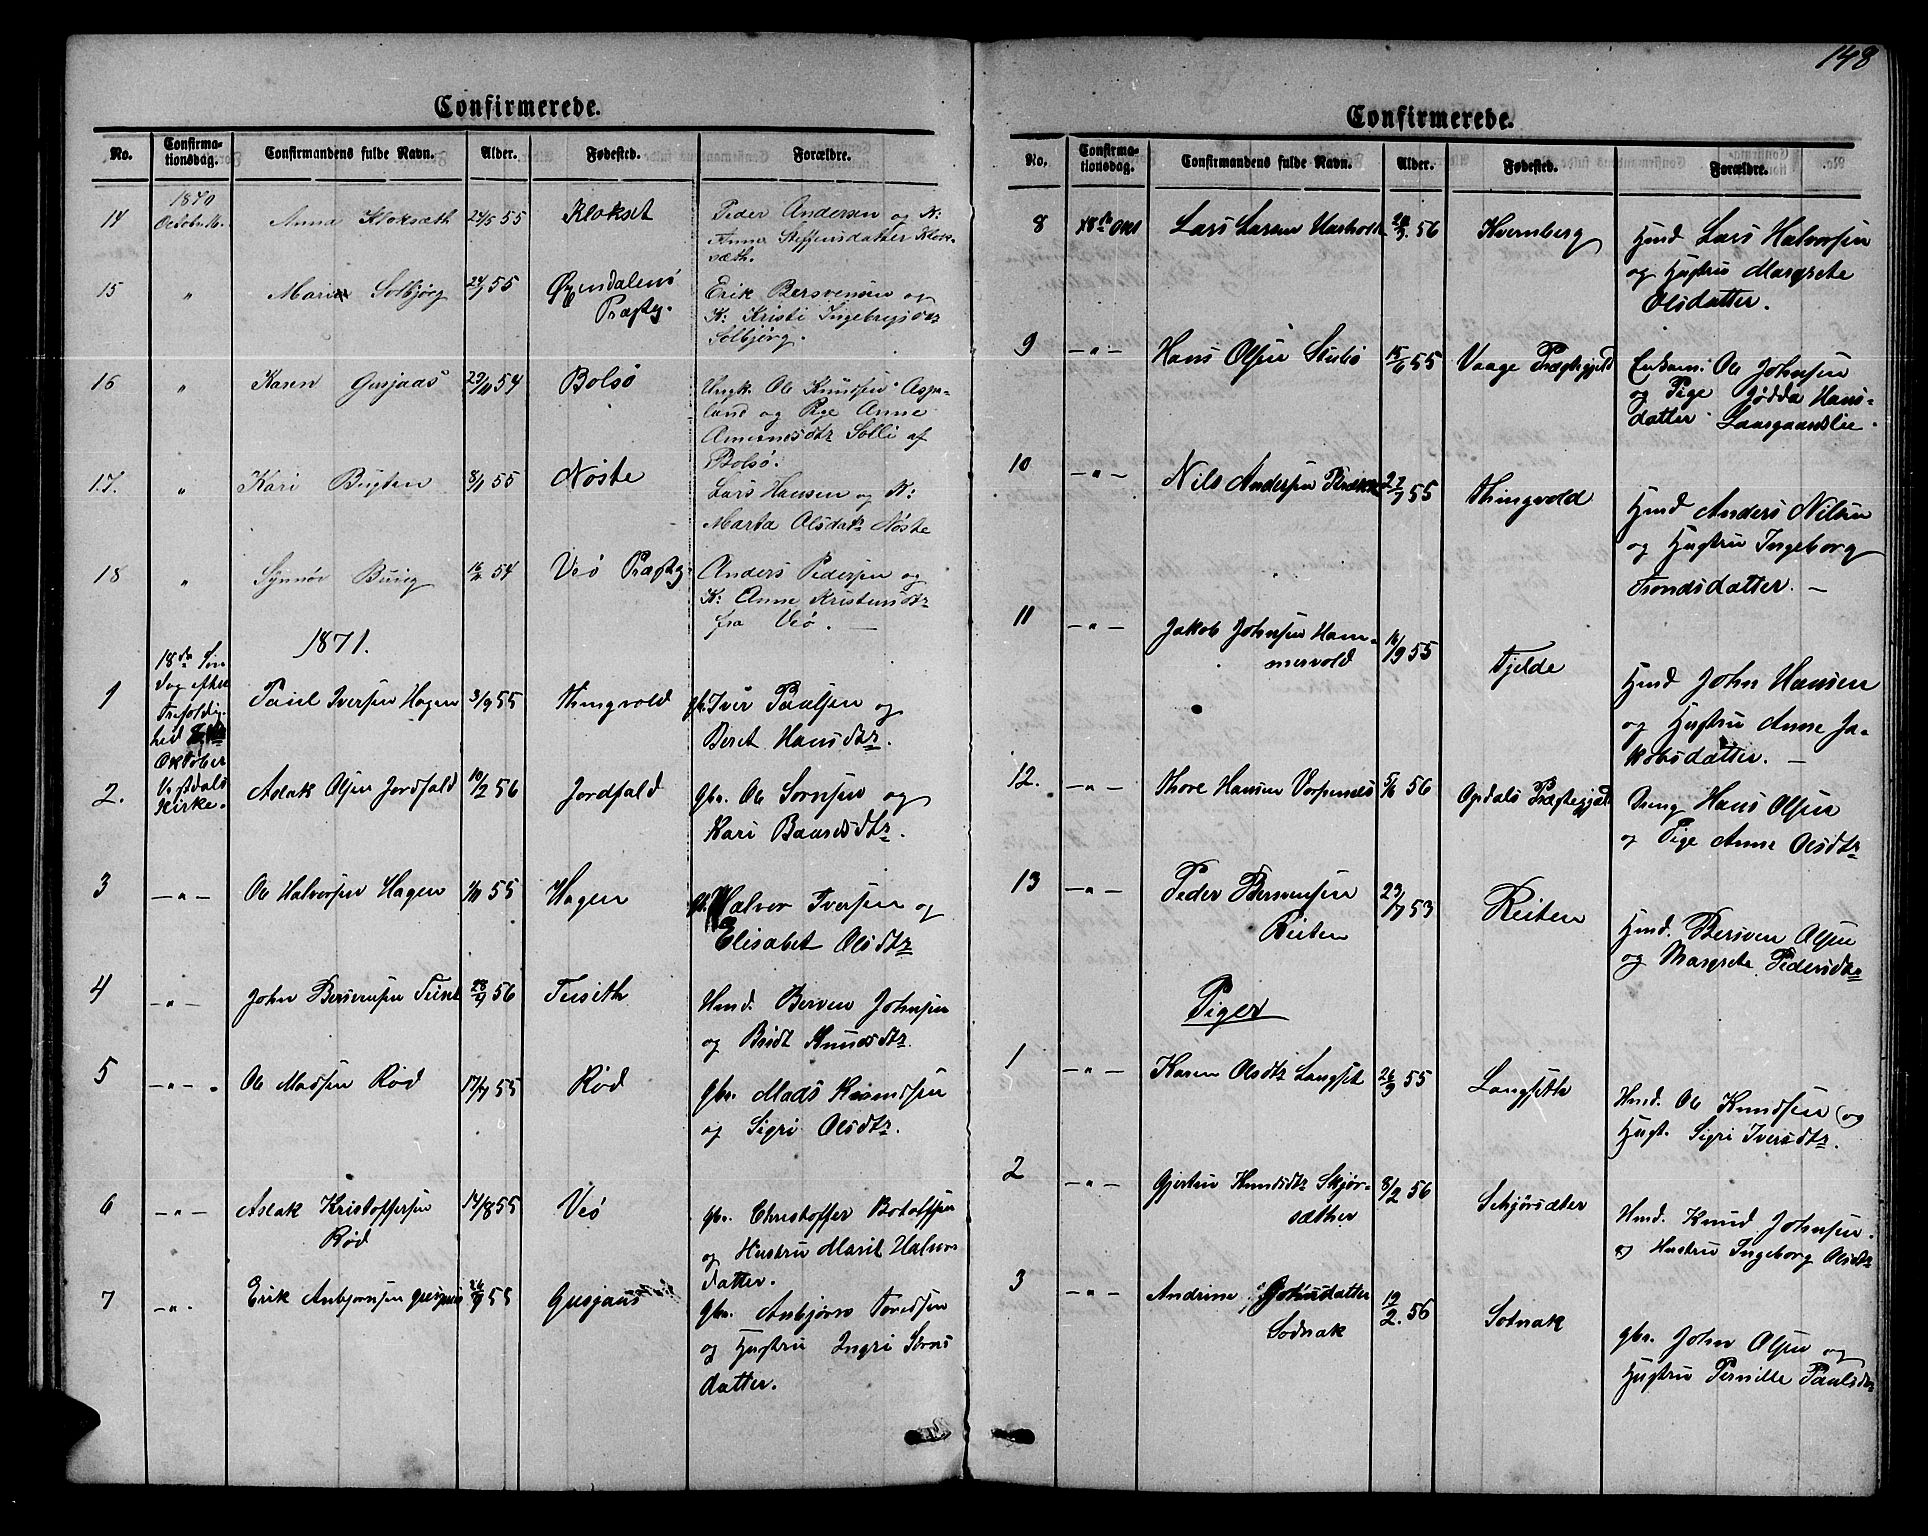 148
Confirmerede.
No.
Confirma-
tionsdag.
Confirmandens fulde Navn.
Alder.
Fødested.
Forældre.
1870
14 Octobr. 16. Anna Kloksæth 24/5 55 Klokset Peder Andersen og K:
Anne Steffensdatter Klok-
sæth.
15 " Marie Solbjørg 24/7 55 Øxendalens
Præstg.
Erik Bersvensen og
K: Kristi Ingebrigsdtr
Solbjørg.
16 " Karen Gusjaas 29/11 54 Bolsø Ungk. Ole Knudsen Aspe-
lund og Pige Anne
Solli af
Bolsø.
17. " Kari Bugten 8/1 55 Nøste Lars Hansen og K:
Marta Olsdatr Nøste
18 " Synnøv 54 Veø Præstg. Anders Pedersen og
K: Anne Kristensdtr
fra Veø. —
1871.
18de Søn-
dag efter
Trefoldig-
hed
Oktober
Vistdals
Kirke.
1 Paul Iversen Hagen 3/9 55 Thingvold gbr. Iver Paulsen og
Beret Hansdtr.
2. Aslak Olsen Jordfald 10/2 56 Jordfald gbr. Ole Sørnsen og
Kari Baardsdtr.
3 — " — Ole Halvorsen Hagen 55 Hagen gbr. Halvor Iversen og
Elisabet Olsdtr
4 — " — John Bersvensen 56 Tusæth Hmd. Berven Johnsen
og Bridt Knudsdtr.
5 — " — Ole Madsen Rød 17/7 55 Rød gbr. Mads
og Sigri Olsdtr.
6 — " — Aslak Kristoffersen
Rød
14/8 55 Veø gbr. Christoffer Botolfsen
og Hustru Marit Halvors
datter.
7 — " — Erik Anbjørnsen Gusjaas 55 Gusjaas gbr. Anbjørn
og Hustru Ingri Sørns
datter.
Confirmerede.
No.
Confirma-
tionsdag.
Confirmandens fulde Navn.
Alder.
Fødested.
Forældre.
8 18de Okt Lars Larsen 56 Kvernberg Hmd Lars Halvorsen
og Hustru Margrete
Olsdatter.
9 — " — Hans Olsen Stubø 15/6 55 Vaage Præstegjeld Enkem. Ole Johnsen
og Pige Jødda Hans-
datter
10 — " — Nils Andersen 27/7 55 Thingvold Hmd Anders Nilsen
og Hustru Ingeborg
Trondsdatter. —
11 — " — Jakob Johnsen Ham-
mervold
16/9 55 Fjelde Hmd John Hansen
og Hustru Anne Ja-
kobsdatter. —
12. — " — Thore Hansen 56 Opdals Præstegjeld Dreng Hans Olsen
og Pige Anne Olsdtr
13 — " — Peder Bersvensen
Reiten
23/7 53 Reiten Hmd. Bersven Olsen
og Margrete Pedersdtr
Piger
1 — " — Karen Olsdtr Langset 26/3 55 Langseth Hmd. Ole Knudsen og
Hust. Sigri Iversdtr.
2 — " — Gjertin Knudsdtr Skjør-
sæther
8/2 56 Skjørsæter Hmd. Knud Johnsen
og Hustru Ingeborg Olsdtr
3 — " — Andrine Johnsdatter
Sodnak
12/2. 56 Sotnak gbr. John Olsen og
Hustru Pernille Paulsdtr